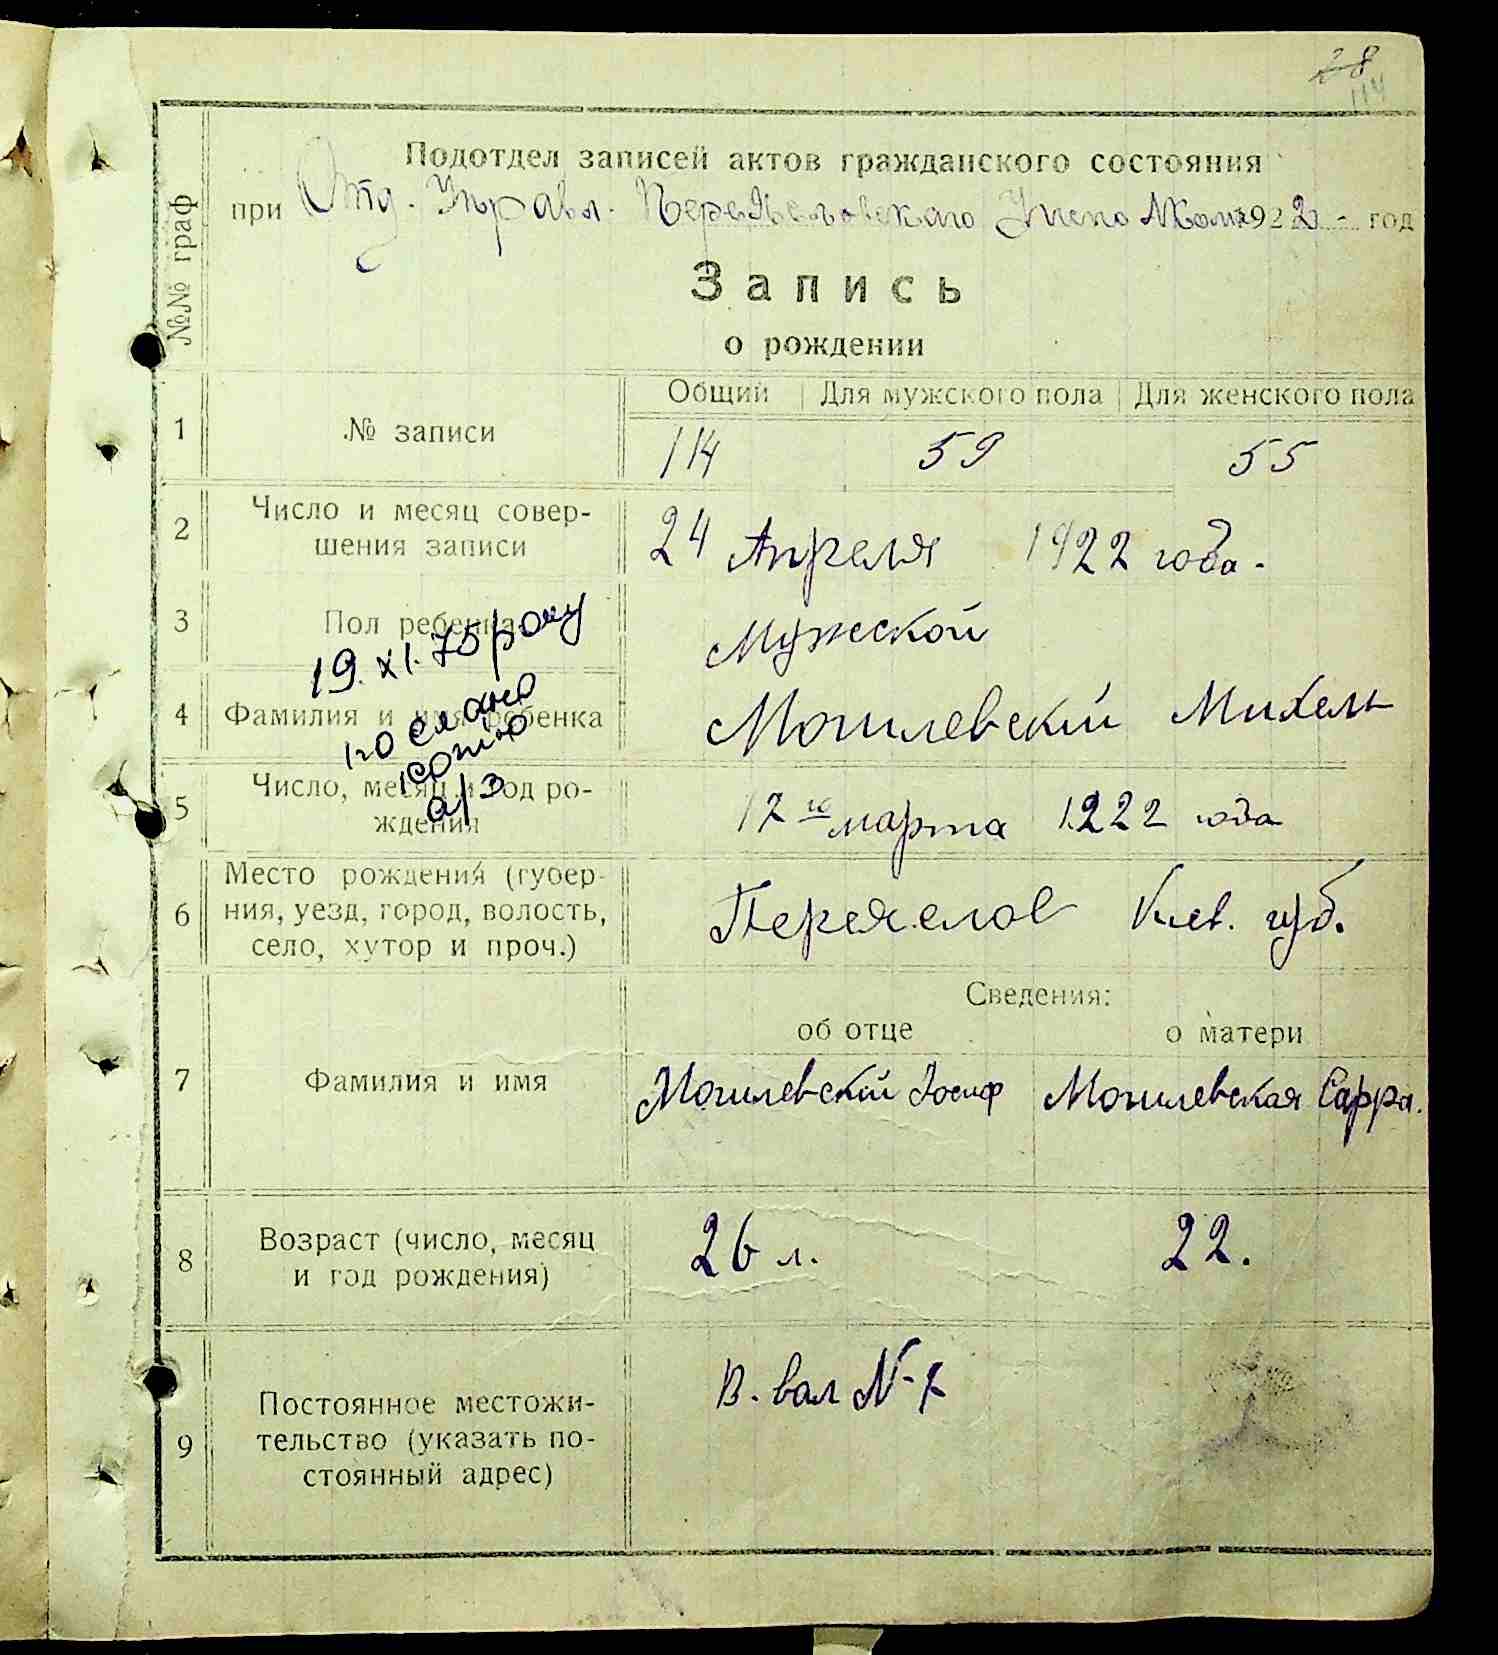 28
114
Подотдел записей актов гражданского состояния
при Отд. Управл. 1922 - год
№№ граф
Запись
о рождении
Общий Для мужского пола Для женского пола
1 № записи 114 59 55
2 Число и месяц совер-
шения записи 24 Апреля 1922 года.
3 Пол ребенка Мужской
19.XI.75 року
4 Фамилия и имя ребенка Могилевский Михель
послано
копію
а/з
5 Число, месяц и год ро-
ждения 17го марта 1922 года
6 Место рождения (губер-
ния, уезд, город, волость,
село, хутор и проч.) Киев. губ.
Сведения:
об отце о матери
7 Фамилия и имя Могилевский Иосиф Могилевская Сарра.
8 Возраст (число, месяц
и год рождения) 26 л. 22.
9 Постоянное местожи-
тельство (указать по-
стоянный адрес) В. вал N-